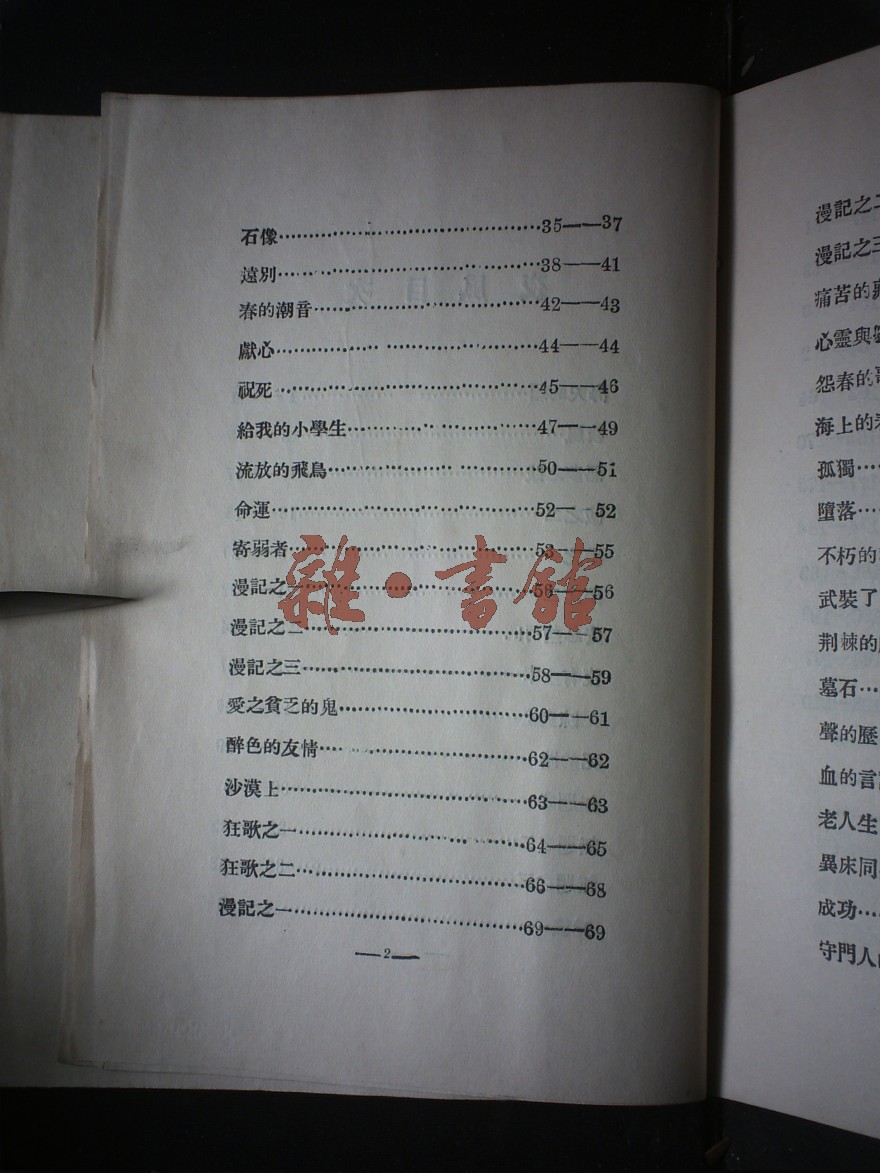 石像……35——37
遠別……38——41
春的潮音……42——43
獻心……44——44
祝死……45——46
給我的小學生……47——49
流放的飛鳥……50——51
命運……52——52
寄弱者……53——55
漫記之一……56——56
漫記之二……57——57
漫記之三……58——59
愛之貧乏的鬼……60——61
醉色的友情……62——62
沙漠上……63——63
狂歌之一……64——65
狂歌之二……66——68
漫記之一……69——69
—2—
雜·書館
漫記之二
漫記之三
痛苦的
心靈與
怨春的
海上的
孤獨……
墮落……
不朽的
武裝了
荆棘的
墓石……
聲的歷
血的言
老人生
異床同
成功……
守門人